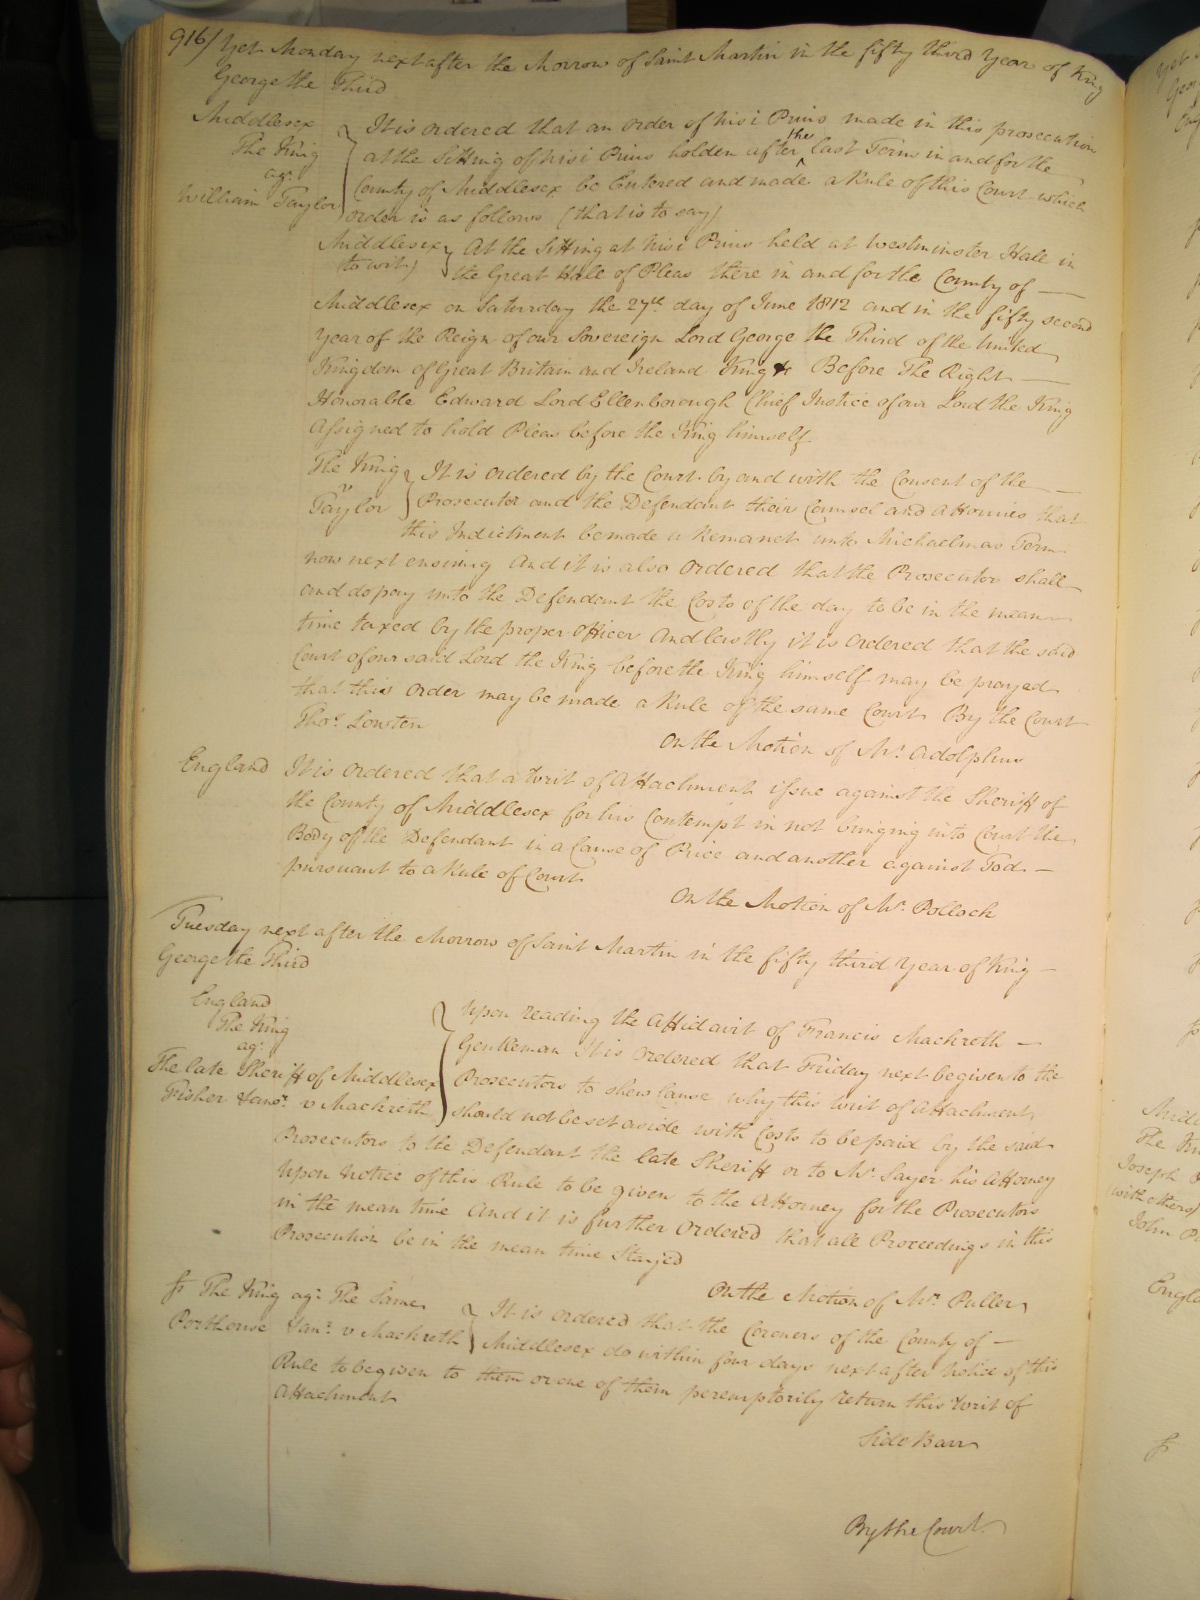 916/ Yet Monday next after the Morrow of Saint Martin in the fifty third Year of King
George the Third
Middlesex
The King
agt
William Taylor
It is ordered that an order of Nisi Prius made in this prosecution
at the Sitting of Nisi Prius holden after the last Term in and for the
County of Middlesex be Entered and made a Rule of this Court which
order is as follows (that is to say)
Middlesex
(to wit)
At the Sitting at Nisi Prius held at Westminster Hall in
the Great Hall of Pleas there in and for the County of
Middlesex on Saturday the 27th day of June 1812 and in the fifty second
Year of the Reign of our Sovereign Lord George the Third of the United
Kingdom of Great Britain and Ireland King &c Before The Right
Honorable Edward Lord Ellenborough Chief Justice of our Lord the King
Assigned to hold Pleas before the King himself
The King
v
Taylor
It is ordered by the Court by and with the Consent of the
Prosecutor and the Defendant their Counsel and Attornies that
this Indictment be made a Remanet unto Michaelmas Term
now next ensuing And it is also Ordered that the Prosecutor shall
and do pay unto the Defendant the Costs of the day to be in the mean
time taxed by the proper Officer And lastly it is ordered that the said
Court of our said Lord the King before the King himself may be prayed
that this Order may be made a Rule of the same Court By the Court
Thos. Lowten
On the Motion of Mr. Adolphus
England It is Ordered that a Writ of Attachment issue against the Sheriff of
the County of Middlesex for his Contempt in not bringing into Court the
Body of the Defendant in a Cause of Price and another against Tod
pursuant to a Rule of Court
On the Motion of Mr. Pollock
Tuesday next after the Morrow of Saint Martin in the fifty third Year of King
George the Third
England
The King
agt
The late Sheriff of Middlesex
Fisher &anr. v Machreth
Upon reading the Affidavit of Francis Machreth
Gentleman It is Ordered that Friday next be given to the
Prosecutors to shew Cause why this Writ of Attachment
should not be set aside with Costs to be paid by the said
Prosecutors to the Defendant the late Sheriff or to Mr. Sayer his Attorney
Upon Notice of this Rule to be given to the Attorney for the Prosecutors
in the mean time And it is further Ordered that all Proceedings in this
Prosecution be in the mean time Stayed
On the Motion of Mr. Puller
fr The King agt The Same
Porthouse &anr. v Machreth
It is ordered that the Coroners of the County of
Middlesex do within four days next after Notice of this
Rule to be given to them or one of them peremptorily return this Writ of
Attachment
Side Barr
By the Court
The
Joseph
(with others)
John
fr